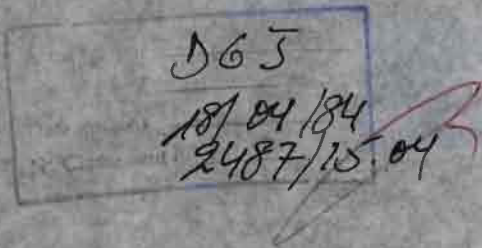 DGJ
18/04/84
2487/15.04